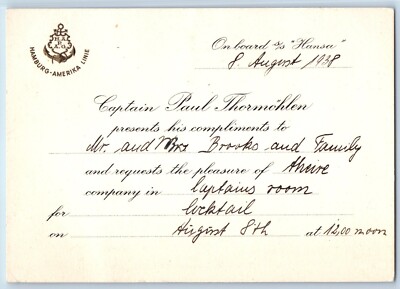 HAPAG
HAMBURG-AMERIKA LINIE
On board s/s "Hansa"
8. August 1938
Captain Paul Thormöhlen
presents his compliments to
Mr. and Mrs Brooks and Family
and requests the pleasure of
company in Captains room
for Cocktail
on August 8th at 12,00 noon